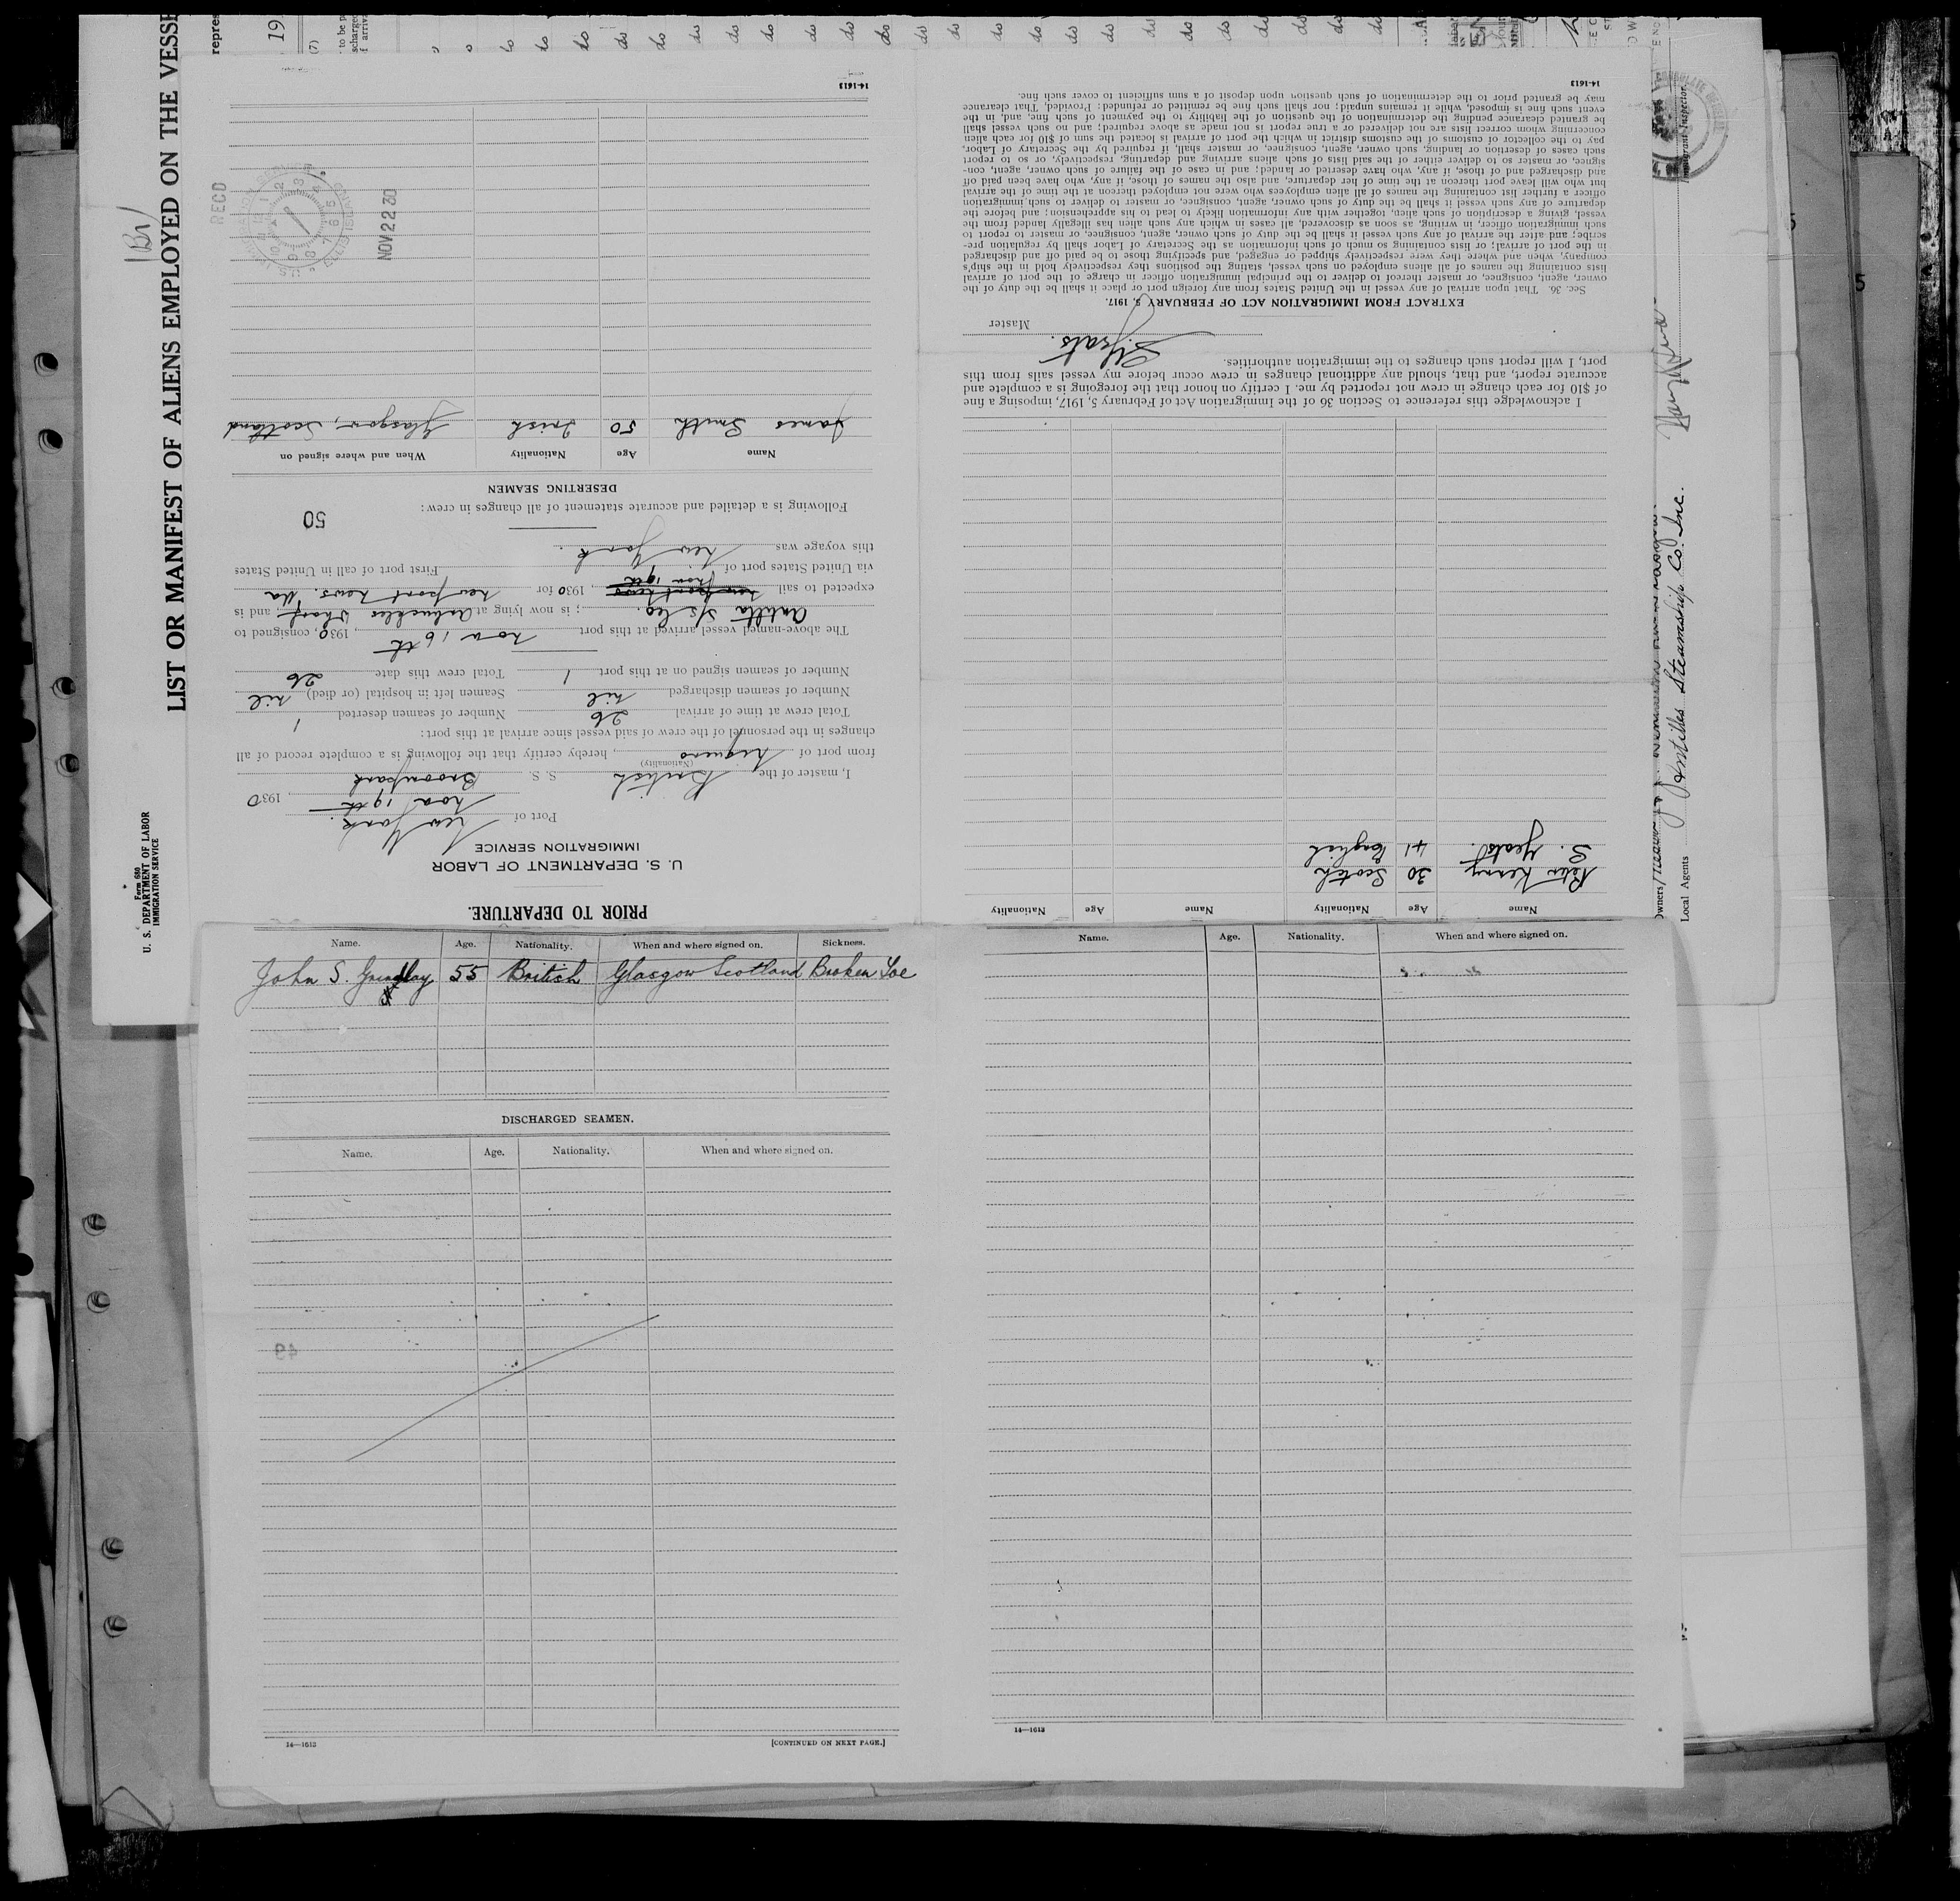 LIST OR MANIFEST OF ALIENS EMPLOYED ON THE VESSE
Form 680
U. S. DEPARTMENT OF LABOR
IMMIGRATION SERVICE
Local Agents Antilles Steamship Co. Inc.
Immigrant Inspector.
PRIOR TO DEPARTURE.
U. S. DEPARTMENT OF LABOR
IMMIGRATION SERVICE
Port of New York.
Nov 19th, 1930
I, master of the British S. S. Broompark
(Nationality)
from port of Nuquero, hereby certify that the following is a complete record of all
changes in the personnel of the crew of said vessel since arrival at this port:
Total crew at time of arrival 26 Number of seamen deserted 1
Number of seamen discharged nil Seamen left in hospital (or died) nil
Number of seamen signed on at this port 1 Total crew this date 26
The above-named vessel arrived at this port Nov 16th, 1930, consigned to
S/S Co.; is now lying at Arbuckles Wharf, and is
expected to sail Nov 19th, 1930 for Newport News. Va
via United States port of First port of call in United States
this voyage was New York.
Following is a detailed and accurate statement of all changes in crew:
50
DESERTING SEAMEN
Name Age Nationality When and where signed on
James Smith 50 Irish Glasgow, Scotland
RECD
NOV 22 30
14-1613
Name Age Nationality Name Age Nationality
Peter Kenny 30 Scotch
S. Yeats. 41 English
I acknowledge this reference to Section 36 of the Immigration Act of February 5, 1917, imposing a fine
of $10 for each change in crew not reported by me. I certify on honor that the foregoing is a complete and
accurate report, and that, should any additional changes in crew occur before my vessel sails from this
port, I will report such changes to the immigration authorities.
S Yeats.
Master
EXTRACT FROM IMMIGRATION ACT OF FEBRUARY 5, 1917.
Sec. 36. That upon arrival of any vessel in the United States from any foreign port or place it shall be the duty of the
owner, agent, consignee, or master thereof to deliver to the principal immigration officer in charge of the port of arrival
lists containing the names of all aliens employed on such vessel, stating the positions they respectively hold in the ship's
company, when and where they were respectively shipped or engaged, and specifying those to be paid off and discharged
in the port of arrival; or lists containing so much of such information as the Secretary of Labor shall by regulation pre-
scribe; and after the arrival of any such vessel it shall be the duty of such owner, agent, consignee, or master to report to
such immigration officer, in writing, as soon as discovered, all cases in which any such alien has illegally landed from the
vessel, giving a description of such alien, together with any information likely to lead to his apprehension; and before the
departure of any such vessel it shall be the duty of such owner, agent, consignee, or master to deliver to such immigration
officer a further list containing the names of all alien employees who were not employed thereon at the time of the arrival
but who will leave port thereon at the time of her departure, and also the names of those, if any, who have been paid off
and discharged and of those, if any, who have deserted or landed; and in case of the failure of such owner, agent, con-
signee, or master so to deliver either of the said lists of such aliens arriving and departing, respectively, or so to report
such cases of desertion or landing, such owner, agent, consignee, or master shall, if required by the Secretary of Labor,
pay to the collector of customs of the customs district in which the port of arrival is located the sum of $10 for each alien
concerning whom correct lists are not delivered or a true report is not made as above required; and no such vessel shall
be granted clearance pending the determination of the question of the liability to the payment of such fine, and, in the
event such fine is imposed, while it remains unpaid; nor shall such fine be remitted or refunded: Provided, That clearance
may be granted prior to the determination of such question upon deposit of a sum sufficient to cover such fine.
14-1613
Name. Age. Nationality. When and where signed on. Sickness.
John S. Grindlay 55 British Glasgow Scotland Broken Toe
DISCHARGED SEAMEN.
Name. Age. Nationality. When and where signed on.
49
14—1613
[CONTINUED ON NEXT PAGE.]
Name. Age. Nationality. When and where signed on.
14—1613